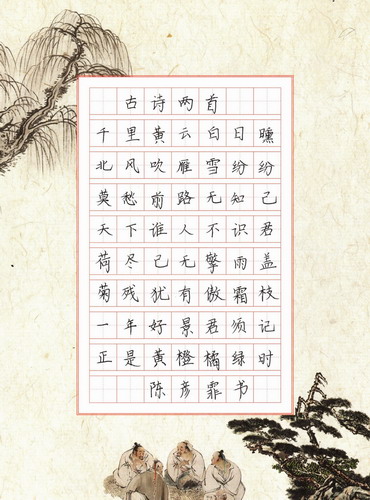 古诗两首
千里黄云白日曛
北风吹雁雪纷纷
莫愁前路无知己
天下谁人不识君
荷尽已无擎雨盖
菊残犹有傲霜枝
一年好景君须记
正是黄橙橘绿时
陈彦霏书